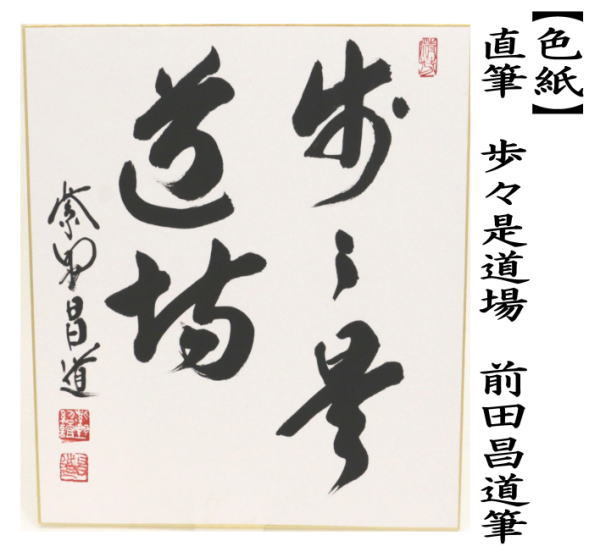 【色紙】
直筆 歩々是道場 前田昌道筆
歩々是
道場
紫野昌道